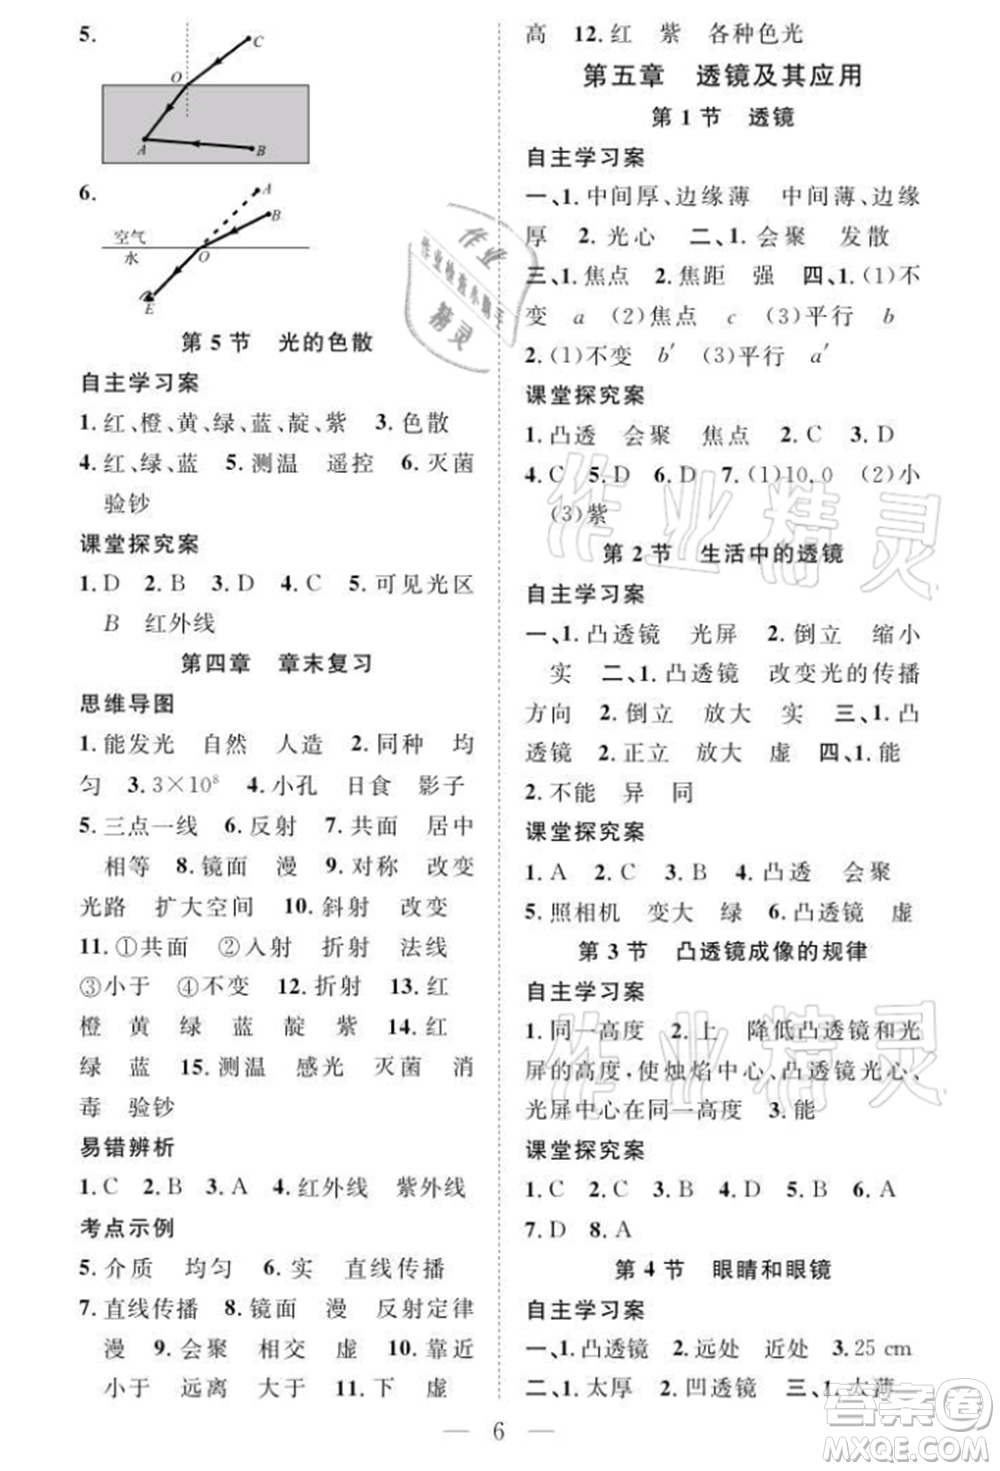 5.
C
O
A
B
6.
A
B
空气
水
O
E
第5节 光的色散
自主学习案
1.红、橙、黄、绿、蓝、靛、紫 3.色散
4.红、绿、蓝 5.测温 遥控 6.灭菌
验钞
课堂探究案
1.D 2.B 3.D 4.C 5.可见光区
B 红外线
第四章 章末复习
思维导图
1.能发光 自然 人造 2.同种 均
匀 3.3×10⁸ 4.小孔 日食 影子
5.三点一线 6.反射 7.共面 居中
相等 8.镜面 漫 9.对称 改变
光路 扩大空间 10.斜射 改变
11.①共面 ②入射 折射 法线
③小于 ④不变 12.折射 13.红
橙 黄 绿 蓝 靛 紫 14.红
绿 蓝 15.测温 感光 灭菌 消
毒 验钞
易错辨析
1.C 2.B 3.A 4.红外线 紫外线
考点示例
5.介质 均匀 6.实 直线传播
7.直线传播 8.镜面 漫 反射定律
漫 9.会聚 相交 虚 10.靠近
小于 远离 大于 11.下 虚
高 12.红 紫 各种色光
第五章 透镜及其应用
第1节 透镜
自主学习案
一、1.中间厚、边缘薄 中间薄、边缘
厚 2.光心 二、1.会聚 发散
三、1.焦点 2.焦距 强 四、1.(1)不
变 a (2)焦点 c (3)平行 b
2.(1)不变 b′ (3)平行 a′
课堂探究案
1.凸透 会聚 焦点 2.C 3.D
4.C 5.D 6.D 7.(1)10.0 (2)小
(3)紫
第2节 生活中的透镜
自主学习案
一、1.凸透镜 光屏 2.倒立 缩小
实 二、1.凸透镜 改变光的传播
方向 2.倒立 放大 实 三、1.凸
透镜 2.正立 放大 虚 四、1.能
2.不能 异 同
课堂探究案
1.A 2.C 3.B 4.凸透 会聚
5.照相机 变大 绿 6.凸透镜 虚
第3节 凸透镜成像的规律
自主学习案
1.同一高度 2.上 降低凸透镜和光
屏的高度,使烛焰中心、凸透镜光心、
光屏中心在同一高度 3.能
课堂探究案
1.C 2.B 3.C 4.B 5.B 6.A
7.D 8.A
第4节 眼睛和眼镜
自主学习案
一、1.凸透镜 2.远处 近处 3.25 cm
二、1.太厚 2.凹透镜 三、1.太薄
6
作业
作业检查小霸王
精灵
作业精灵
作业精灵
答案圈
MXQE.COM